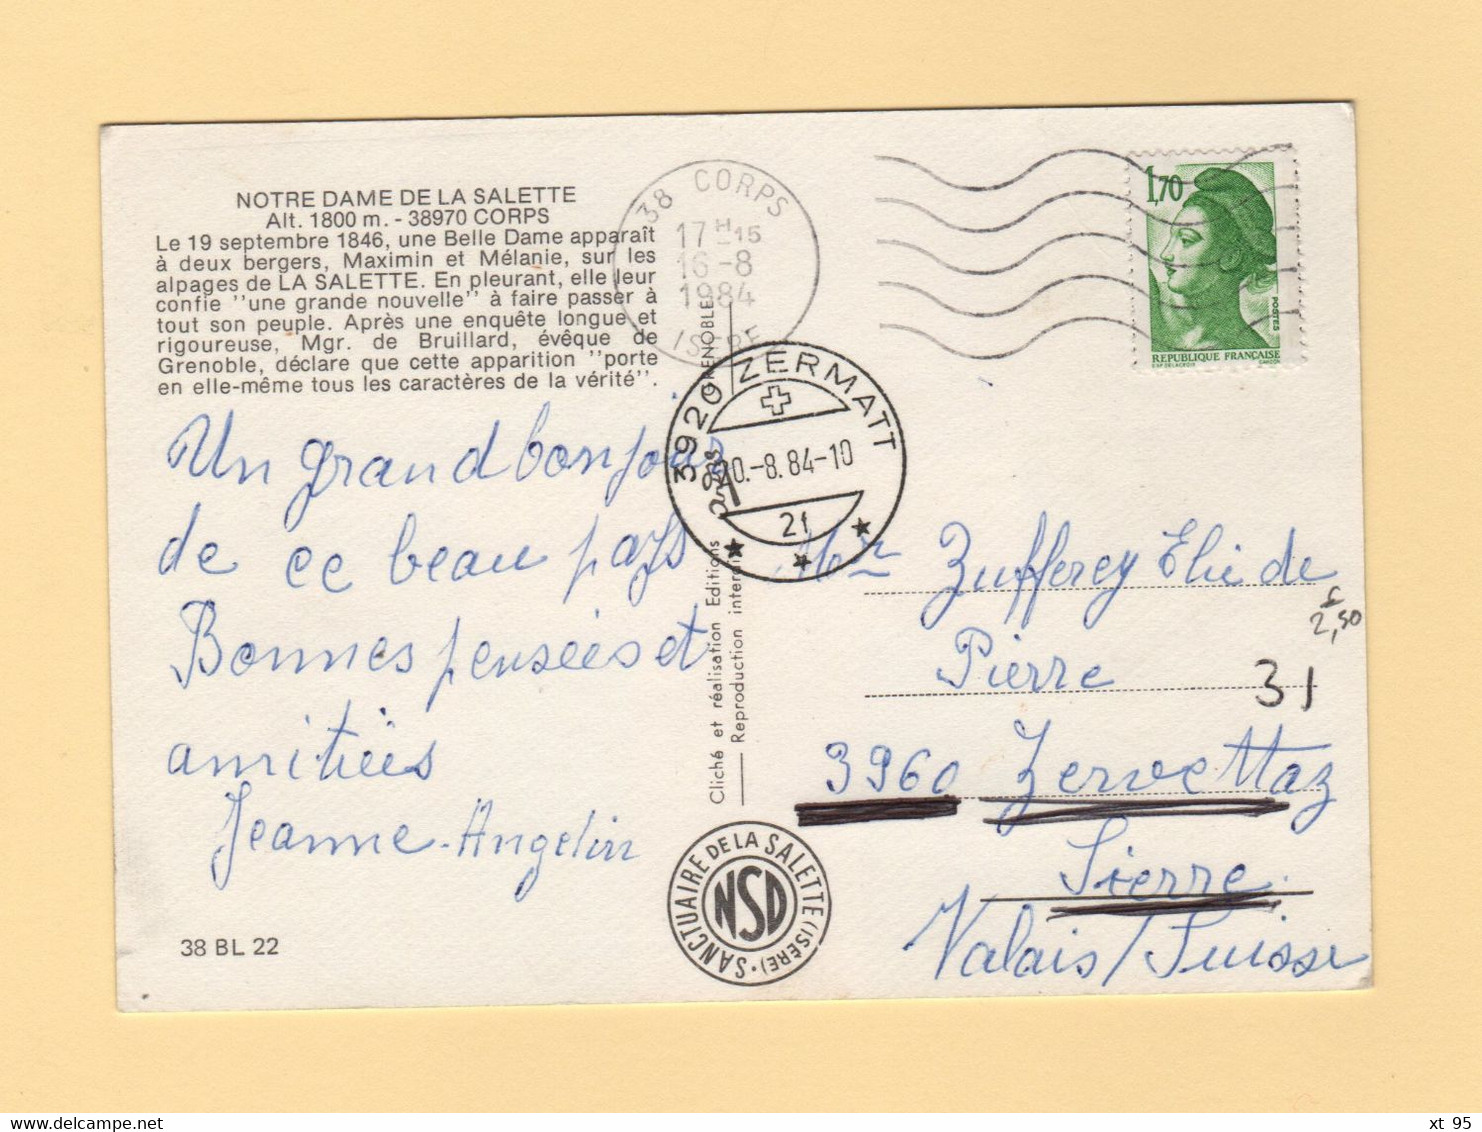 NOTRE DAME DE LA SALETTE
Alt. 1800 m. - 38970 CORPS
Le 19 septembre 1846, une Belle Dame apparaît
à deux bergers, Maximin et Mélanie, sur les
alpages de LA SALETTE. En pleurant, elle leur
confie "une grande nouvelle" à faire passer à
tout son peuple. Après une enquête longue et
rigoureuse, Mgr. de Bruillard, évêque de
Grenoble, déclare que cette apparition "porte
en elle-même tous les caractères de la vérité".
Un grand bonjour
de ce beau pays
Bonnes pensées et
amitiés
Jeanne-Angelin
38 BL 22
38 CORPS
17 H 15
16-8
1984
ISERE
3920 ZERMATT
20.-8.84-10
21
GRENOBLE
Cliché et réalisation Editions
Reproduction interdite
SANCTUAIRE DE LA SALETTE (ISÈRE)
NSD
1,70
POSTES
REPUBLIQUE FRANÇAISE
ESP. DELACROIX
GANDON
Zufferey Elie de
Pierre
2,50
31
3960
Sierre
Valais/Suisse
xt 95